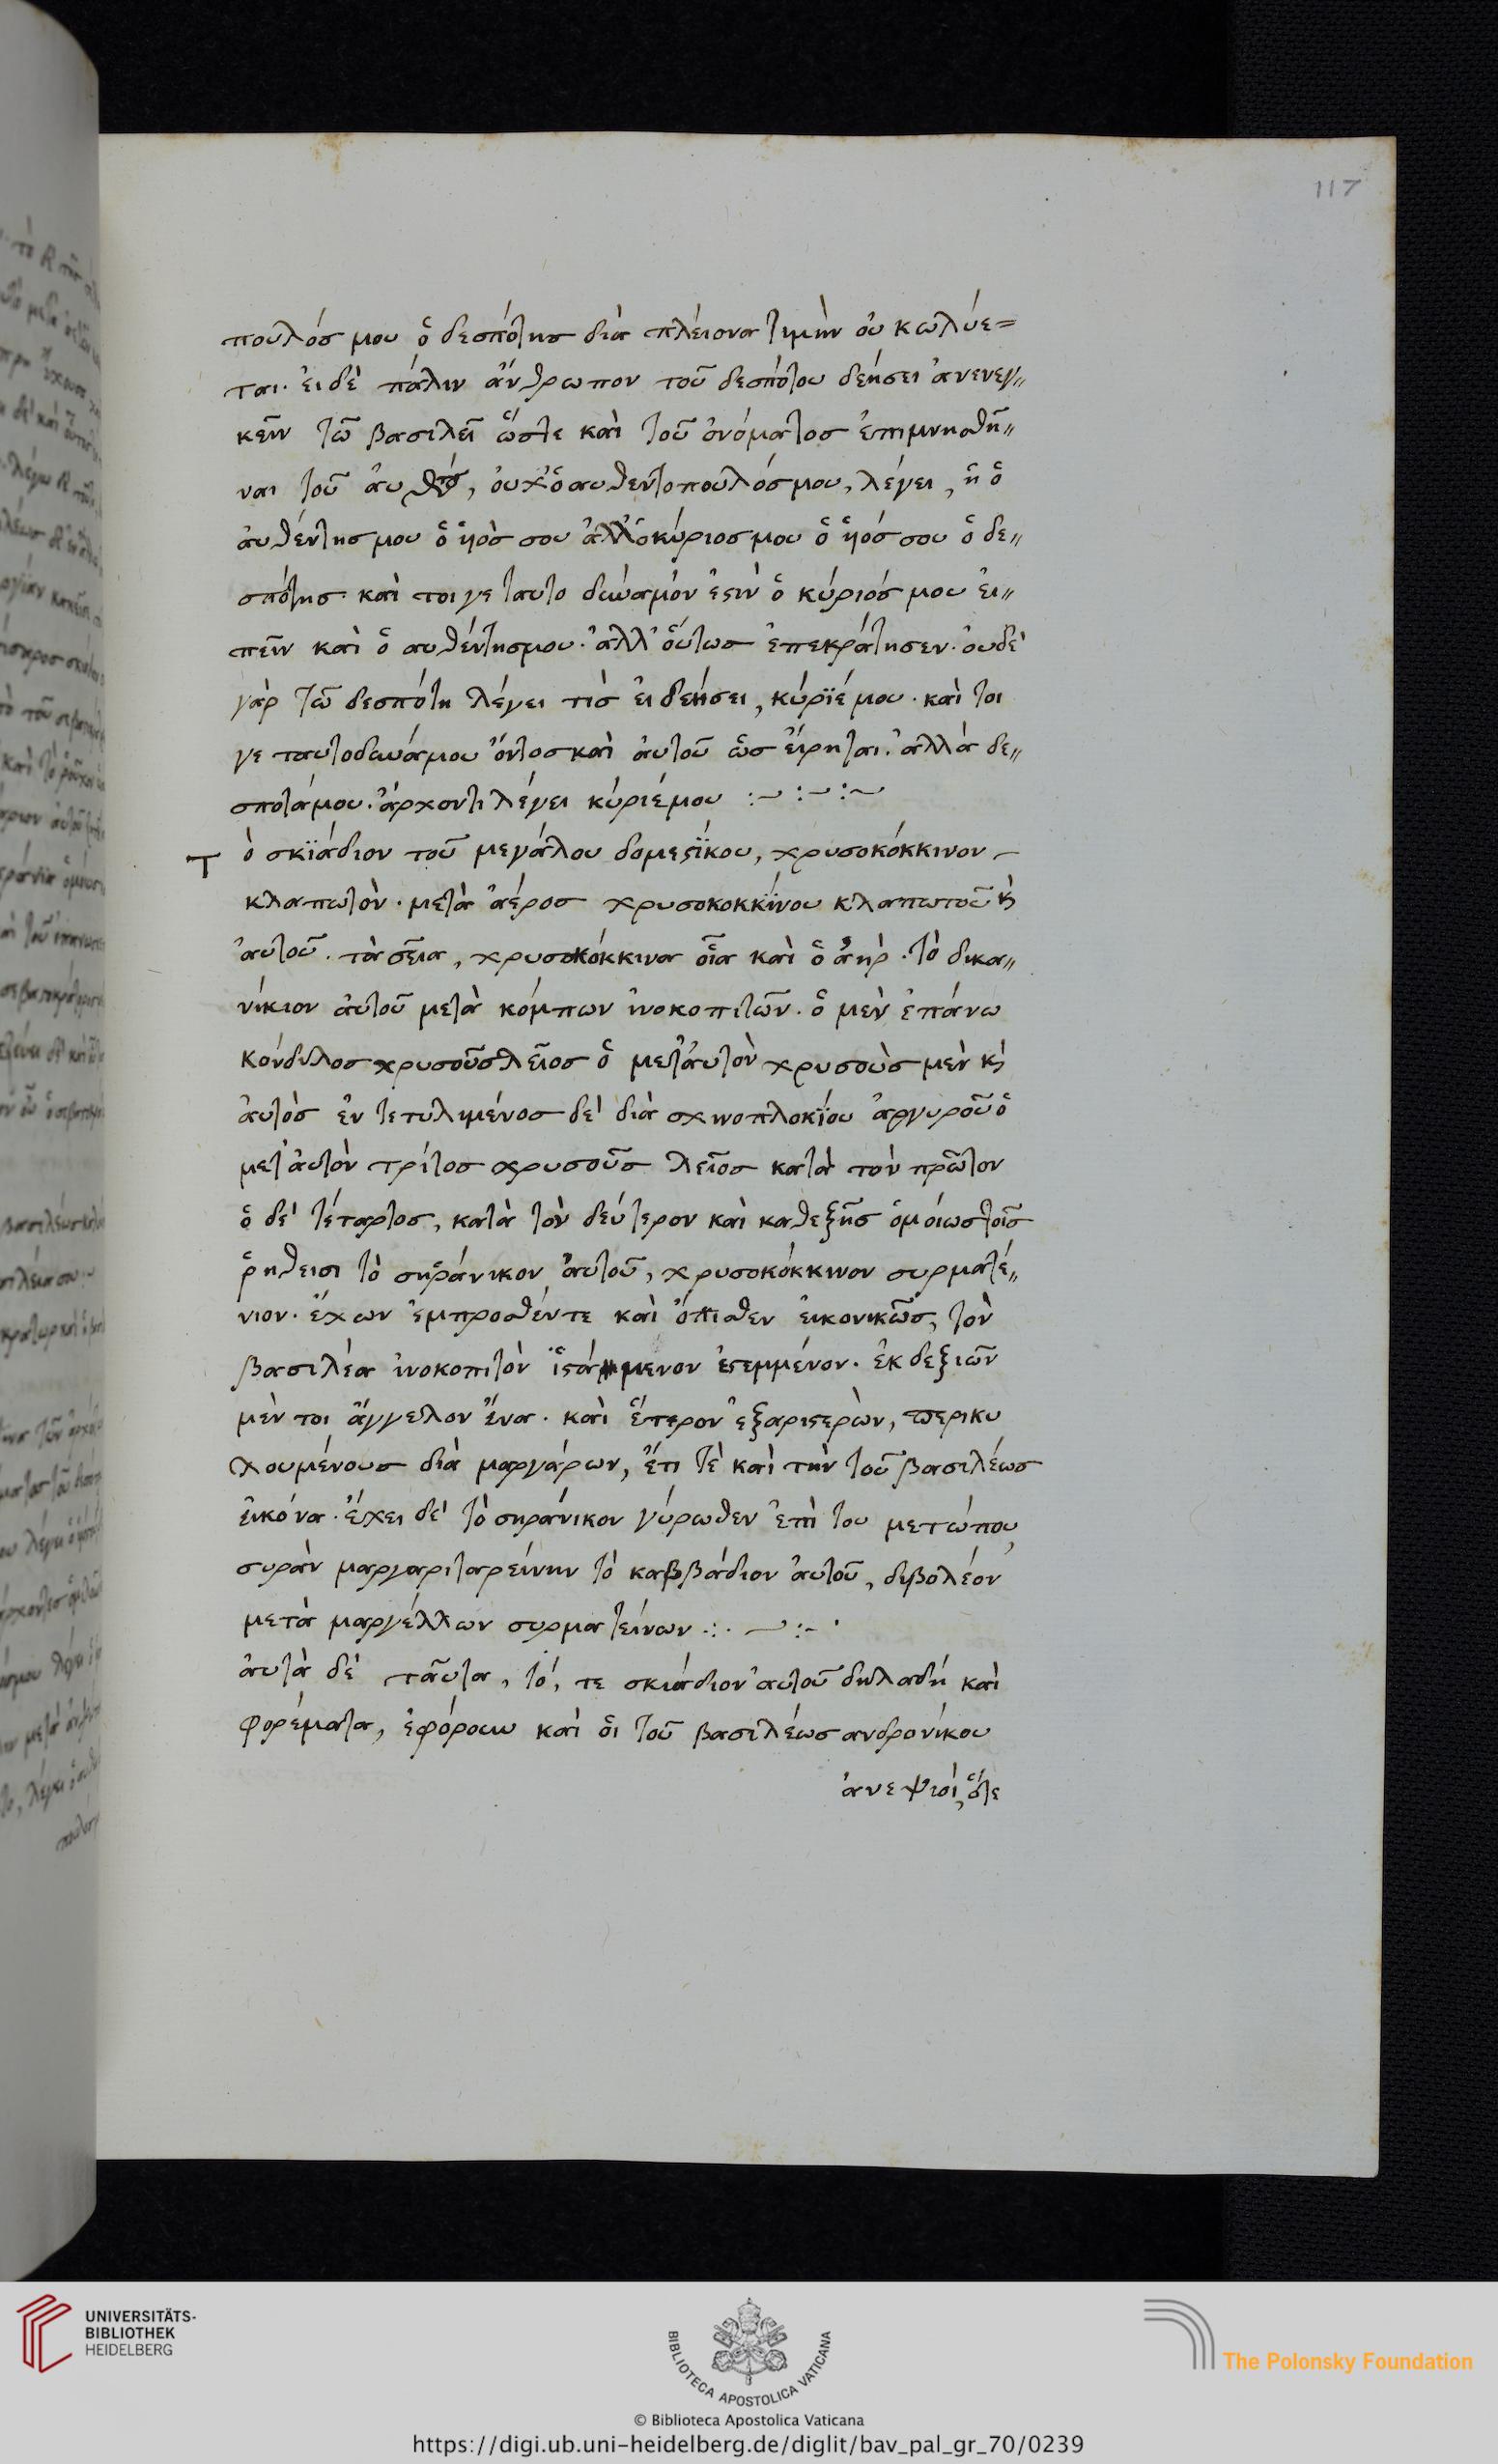 117
πουλός μου ὁ δεσπότης διὰ πλείονα τιμὴν οὐ κωλύε=
ται. εἰ δὲ πάλιν ἄνθρωπον τοῦ δεσπότου δεήσει ἀνενεγ〃
κεῖν τῶ βασιλεῖ ὥστε καὶ τοῦ ὀνόματος ἐπιμνησθῆ〃
ναι τοῦ αὐθ, οὐχ̓ ὁ αυθεντοπουλός μου, λέγει, ἢ ὁ
ἀυθέντης μου ὁ ὑιὸς σου ἀλλ̓ ὁ κύριος μου ὁ ὑιός σου ὁ δε〃
σπότης. καὶ τοι γε ταυτο δυνάμόν ἐστὶν ὁ κύριός μου ἐι〃
πεῖν καὶ ὁ αυθέντης μου. ἀλλ̓ ὅυτως ἐπεκράτησεν. ὀυδὲ
γὰρ τῶ δεσπότη λέγει τὶς εἰ δεήσει, κύριέ μου. καὶ τοι
γε ταυτοδυνάμου ὄντος καὶ ἀυτοῦ ὡς ἔιρηται. ἀλλὰ δε〃
σποτάμου. ἄρχοντι λέγει κύριέμου :~ :~ :~
Τ ὸ σκϊάδιον τοῦ μεγάλου δομεστίκου, χρυσοκόκκινον
κλαπωτὸν. μετὰ ἀέρος χρυσοκοκκίνου κλαπωτοῦ κὶ
ἀυτοῦ. τὰ σεῖα, χρυσοκόκκινα οἷα καὶ ὁ ἀὴρ. τὸ δικα〃
νίκιον ἀυτοῦ μετὰ κόμπων ἰνοκοπιτῶν. ὁ μὲν ἐπάνω
κόνδυλος χρυσοῦς λεῖος ὁ μετ̓ ἀυτὸν χρυσοὺς μὲν κὶ
ἀυτὸς ἐν τετυλιμένος δὲ διὰ σχινοπλοκΐου ἀργυροῦ ὁ
μετ̓ ἀυτὸν τρίτος χρυσοῦς λεῖος κατὰ τὸν πρῶτον
ὁ δὲ τέταρτος, κατὰ τὸν δεύτερον καὶ καθεξῆς ὁμοίως τοῖς
ῥηθεισι τὸ σκράνικον ἀυτοῦ, χρυσοκόκκινον συρματέ〃
νιον. ἔχων ἐμπροσθέντε καὶ ὄπισθεν ἐικονικῶς, τὸν
βασιλέα ἰνοκοπιτὸν ἱστάμενον ἐστεμμένον. ἐκ δεξιῶν
μὲν τοι ἄγγελον ἕνα. καὶ ἕτερον ἐξαριστερὼν, περικυ
χουμένους διὰ μαργάρων, ἔτι τὲ καὶ τὴν τοῦ βασιλέως
ἐικόνα. ἔχει δὲ τὸ σκράνικον γύρωθεν ἐπὶ του μετώπου
συρὰν μαργαριταρείνην τὸ καββάδιον ἀυτοῦ, διβολέον
μετὰ μαργέλλων συρματείνων :. ~ :~
ἀυτὰ δὲ ταῦτα, τό, τε σκιάδιον ἀυτοῦ δηλαδή καὶ
φορέματα, ἐφόρουν καὶ ὁι τοῦ βασιλέως ανδρονίκου
ἀνεψιοί, ὅτε
UNIVERSITÄTS-
BIBLIOTHEK
HEIDELBERG
BIBLIOTECA APOSTOLICA VATICANA
The Polonsky Foundation
© Biblioteca Apostolica Vaticana
https://digi.ub.uni-heidelberg.de/diglit/bav_pal_gr_70/0239